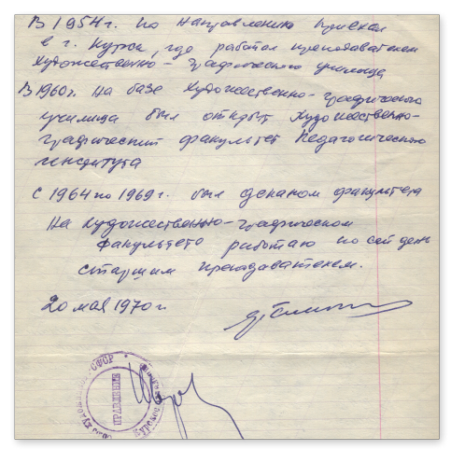 В 1954 г. по направлению приехал
в г. Курск, где работал преподавателем
Художественно-графического училища
В 1960 г. на базе Художественно-графического
училища был открыт Художественно-
графический факультет Педагогического
института
С 1964 по 1969 г. был деканом факультета
На Художественно-графическом
факультете работаю по сей день
старшим преподавателем.
20 мая 1970 г.